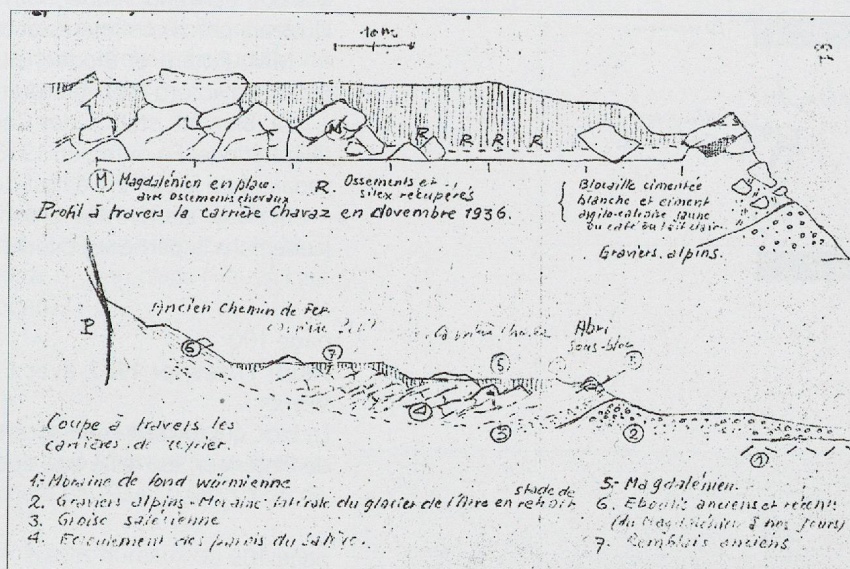 10m
67
M Magdalénien en place
avec ossements chevaux
R. Ossements et
silex récupérés
Blocaille cimentée
blanche et ciment
argilo-calcaire jaune
ou café au lait clair
Profil à travers la carrière Chavaz en Novembre 1936.
Graviers alpins.
M
R R R R
P
Ancien Chemin de Fer
Abri
sous-bloc
6 7 5
4 3 2 1
Coupe à travers les
carrières de Veyrier.
1.- Moraine de fond würmienne
2. Graviers alpins - Moraine latérale du glacier de l'Arve en stade de retrait
3. Groise salévienne
4. Ecroulement des parois du Salève.
5.- Magdalénien.
6. Eboulis anciens et récents
(du Magdalénien à nos jours)
7. Remblais anciens